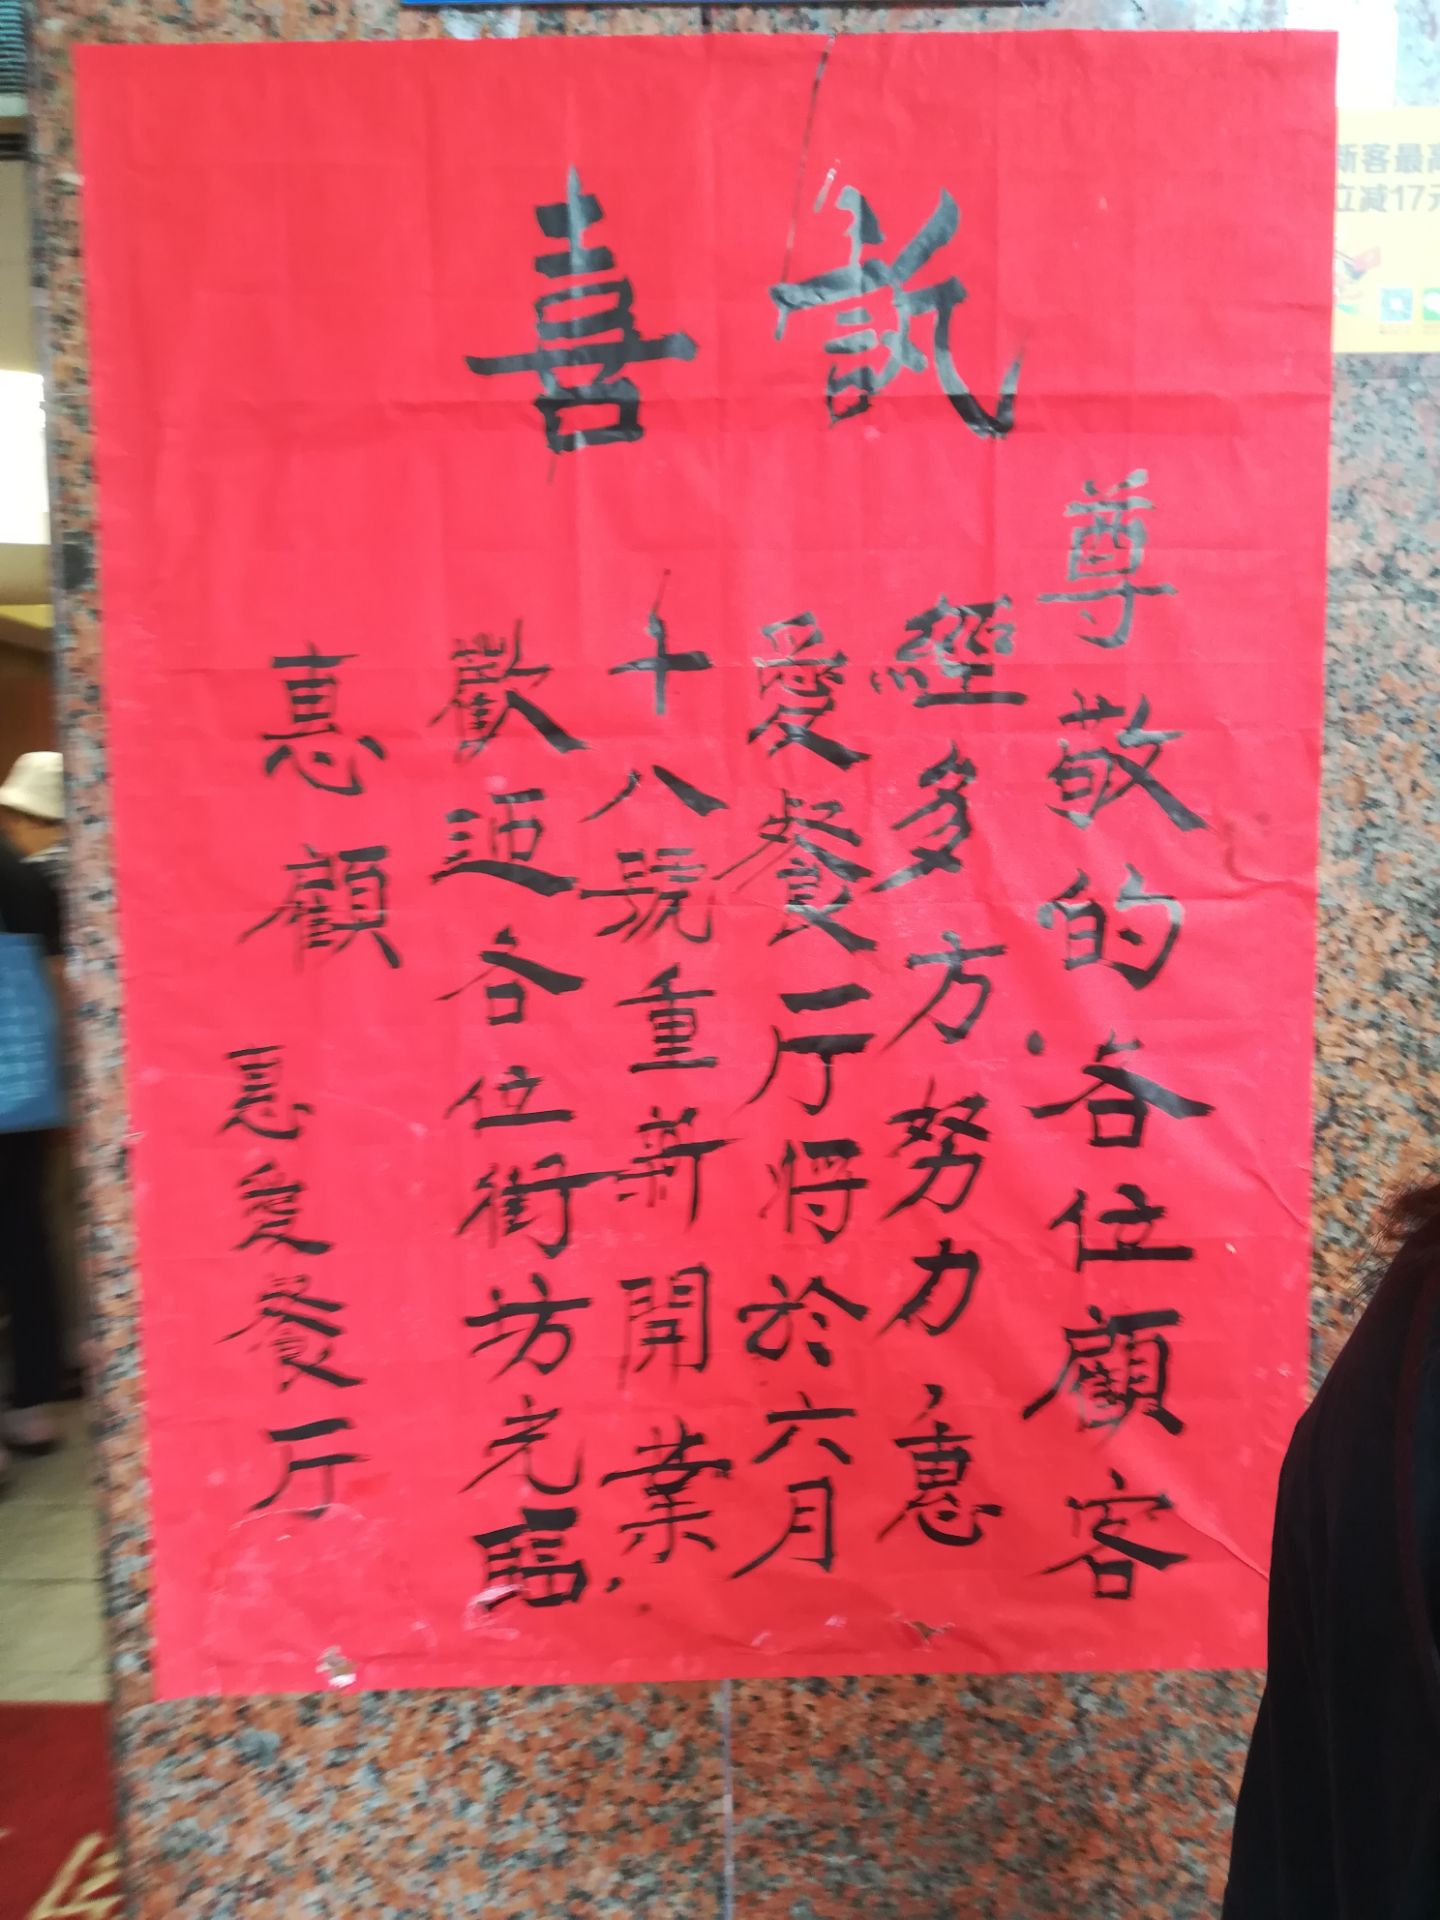 喜訊
尊敬的各位顧客
經多方努力惠
愛餐厅将於六月
十八號重新開業,
歡迎各位街坊光臨
惠顧
惠愛餐厅
新客最高
立减17元